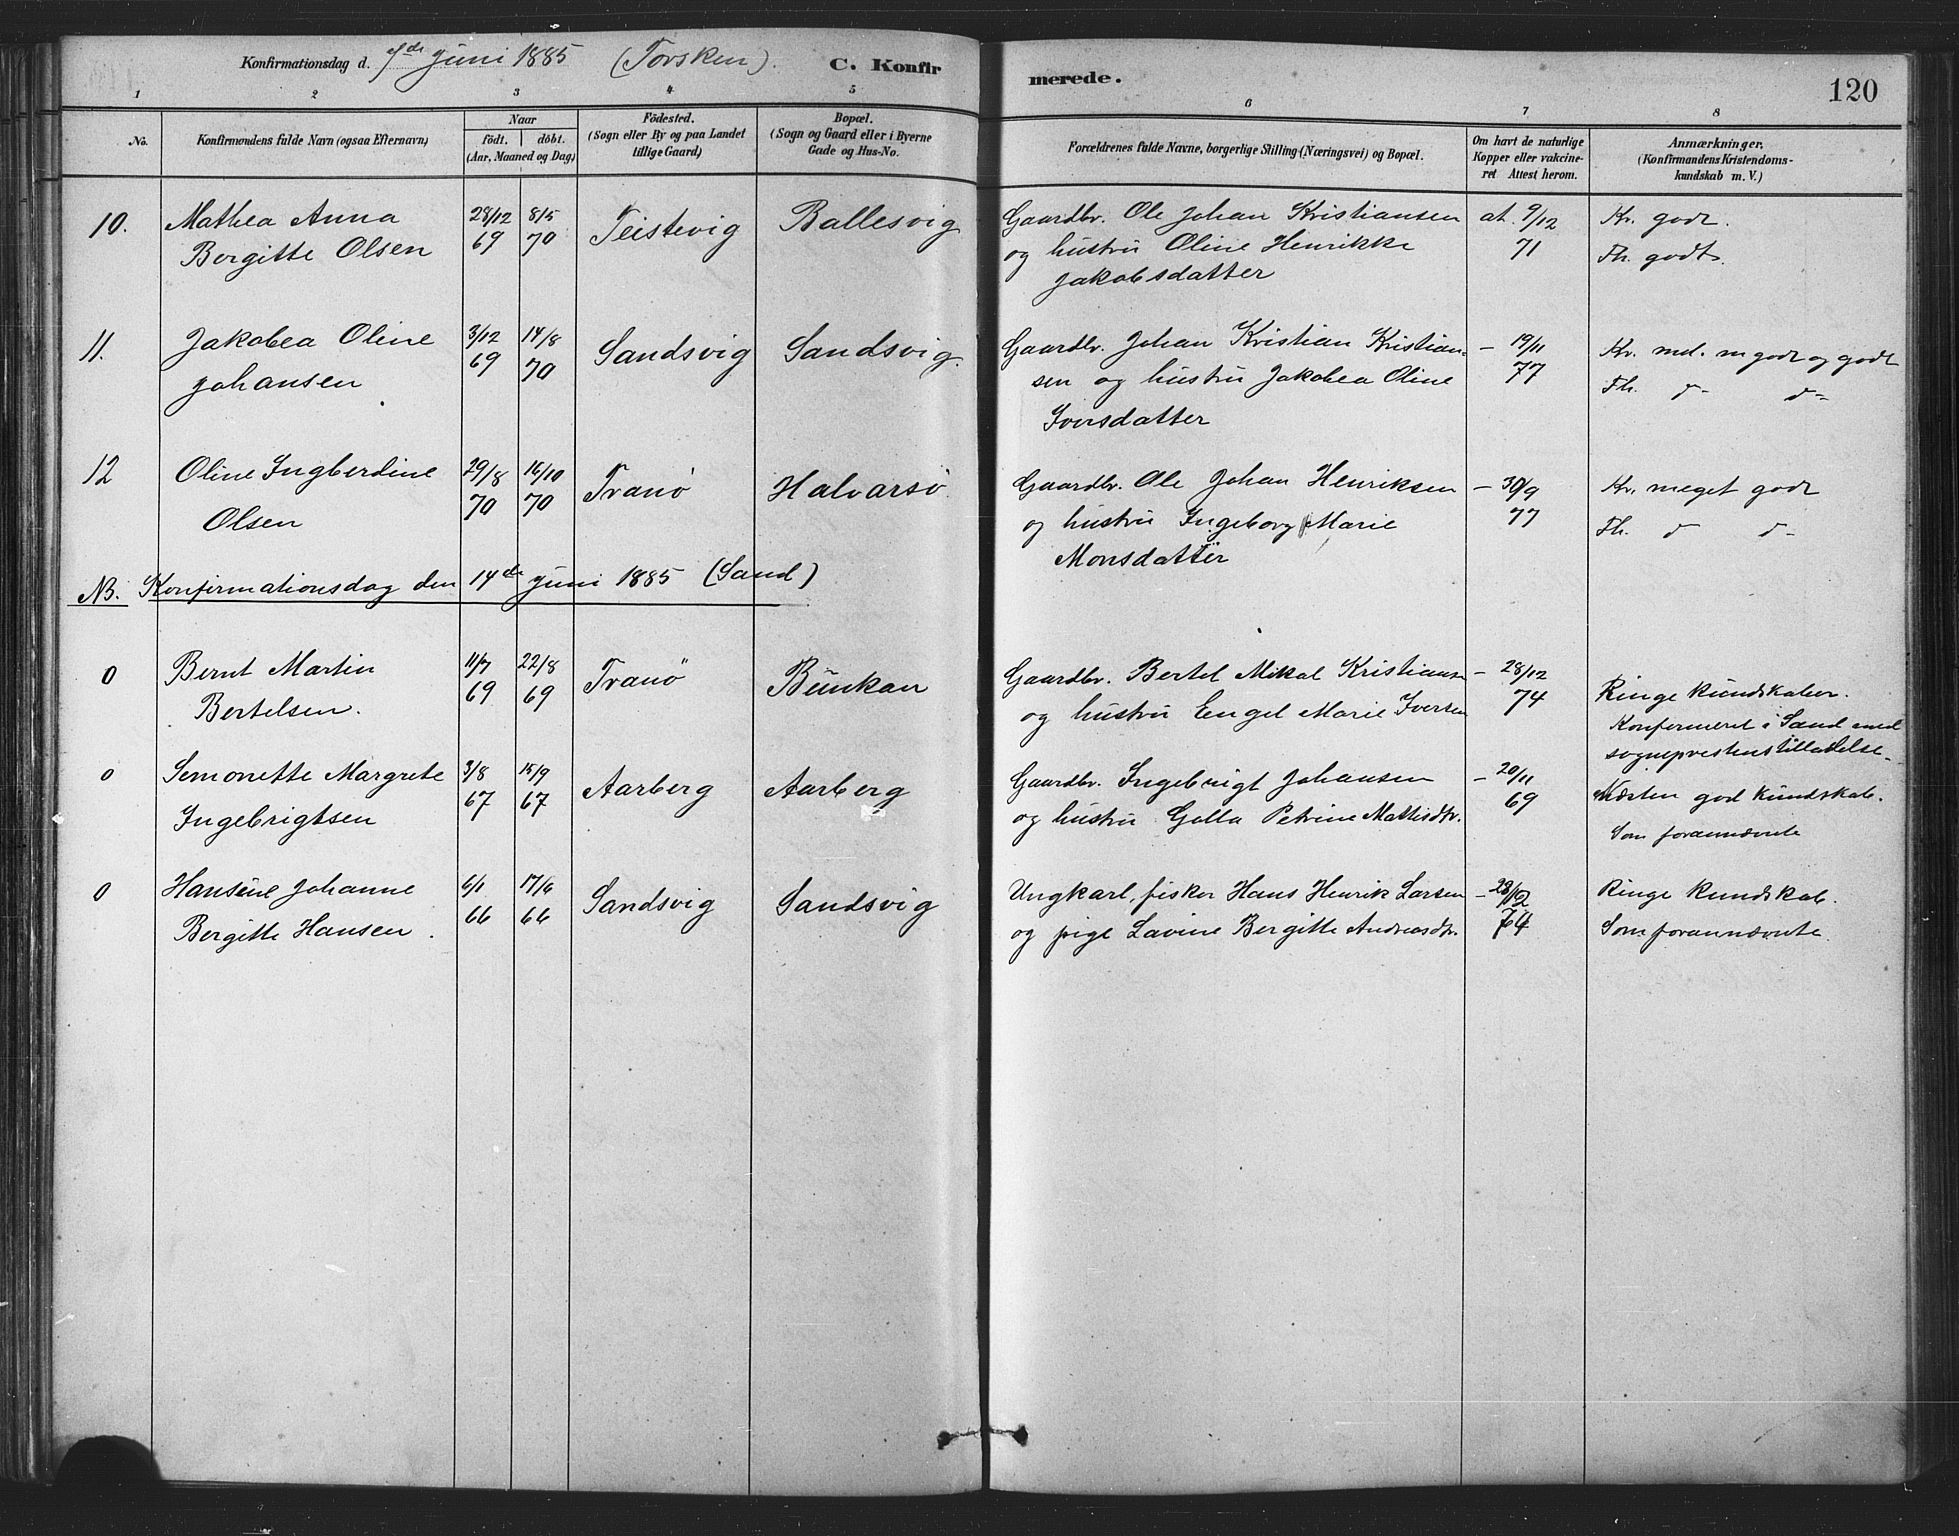 Konfirmationsdag d. 7de Juni 1885 (Torsken). C. Konfirmerede. 120
1 2 3 4 5 6 7 8
No.
Konfirmandens fulde Navn (ogsaa Efternavn)
Naar
født. | döbt.
(Aar, Maaned og Dag)
Födested.
(Sogn eller By og paa Landet
tillige Gaard)
Bopæl.
(Sogn og Gaard eller i Byerne
Gade og Hus-No.
Forældrenes fulde Navne, borgerlige Stilling (Næringsvei) og Bopæl.
Om havt de naturlige
Kopper eller vakcine-
ret Attest herom.
Anmærkninger.
(Konfirmandens Kristendoms-
kundskab m. V.)
10. Mathea Anna 28/12 8/5 Teistevig Ballesvig Gaardbr. Ole Johan Kristiansen at. 9/12 Kr. godt.
Bergitte Olsen 69 70 og hustru Oline Henrikke 71 Fh. godt.
Jakobsdatter
11. Jakobea Oline 3/12 14/8 Sandsvig Sandsvig. Gaardbr. Johan Kristian Kristian- – 19/11 Kr. md. m godt og godt
Johansen 69 70 sen og hustru Jakobea Oline 77 Fh. d– d–
Iversdatter
12 Oline Ingberdine 29/8 16/10 Tranö Halvarsö. Gaardbr. Ole Johan Henriksen – 30/9 Kr. meget godt
Olsen 70 70 og hustru Ingeborg Marie 77 Fh. d d–
Monsdatter
NB. Konfirmationsdag den 14de Juni 1885 (Sand)
0 Bernt Martin 11/7 22/8 Tranö Bunkan Gaardbr. Bertel Mikal Kristianse – 28/12 Ringe kundskaber.
Bertelsen. 69 69 og hustru Engel Marie Iversen 74 Konfirmeret i Sand med
sogneprestens tilladelse.
0 Semonette Margrete 3/8 15/9 Aarberg Aarberg Gaardbr. Ingebrigt Johansen – 20/11 Næsten god kundskab.
Ingebrigtsen 67 67 og hustru Golla Petrine Mattisdtr. 69 Som forannævnte
0 Hansine Johanne 6/1 17/6 Sandsvig Sandsvig Ungkarl, fisker Hans Henrik Larsen – 28/12 Ringe kundskab.
Bergitte Hansen. 66 66 og pige Lavine Bergitte Andreasdtr. 74 Som forannævnte.